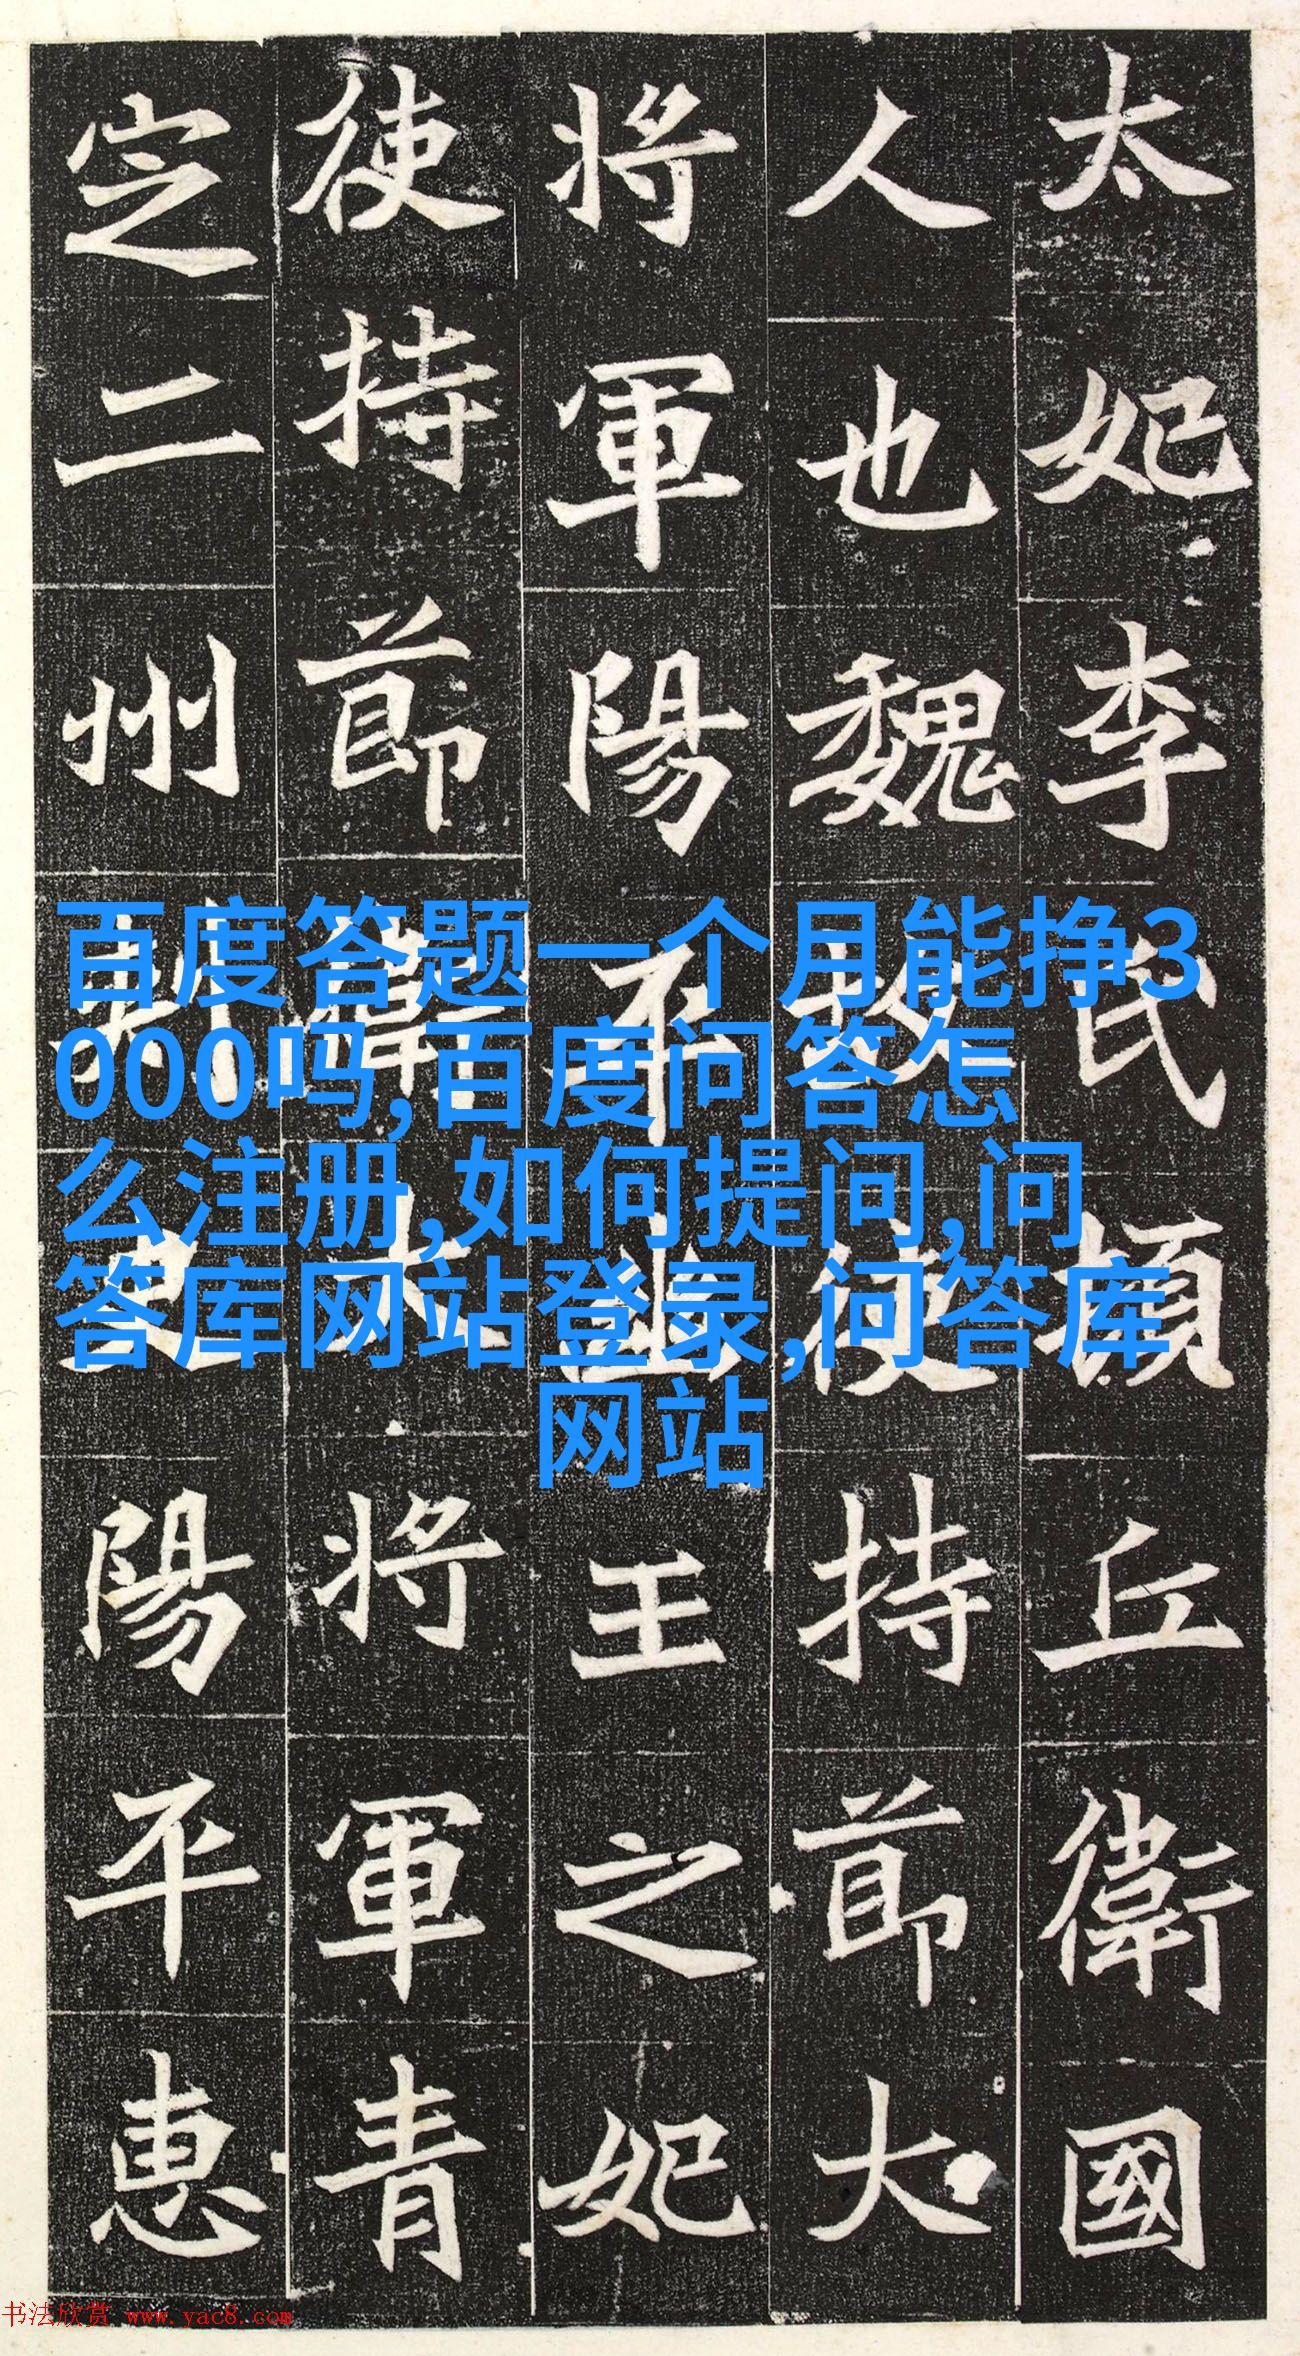 太妃李氏頓丘衛國
人也魏故使持節大
將軍陽平幽王之妃
使持節衛大將軍青
定二州刺史陽平惠
百度答题一个月能挣3
000吗,百度问答怎
么注册,如何提问,问
答库网站登录,问答库
网站
书法欣赏 www.yac8.com